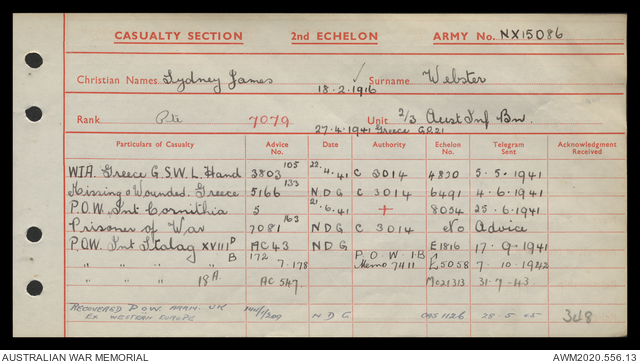 CASUALTY SECTION 2nd ECHELON ARMY No. NX15086
Christian Names Sydney James 18.2.1916 Surname Webster
Rank Pte 7079 Unit 2/3 Aust Inf Bn.
27.4.1941 Greece
Particulars of Casualty Advice No. Authority Echelon No. Telegram Sent Acknowledgment Received
WIA. Greece G.S.W. L. Hand 3803 105 22.4.41 C 3014 4820 5.5.1941
Missing & Wounded. Greece 5166 133 N D G C 3014 6491 4.6.1941
P.O.W. Int Cornithia S 21.6.41 + 8054 25.6.1941
Prisoner of War 7081 163 N D G C 3014 No Advice
P.O.W. Int Stalag XVIII D AC43 N D G E1816 17.9.1941
" " " B 172 7.178 P.O.W. 1B Memo 7411 E5058 7.10.1942
" " 18A AC 547 M021313 31.7.43.
RECOVERED P.O.W. ARRIV. UK
EX WESTERN EUROPE N D G 1126 28.5.45 348
AUSTRALIAN WAR MEMORIAL AWM2020.556.13